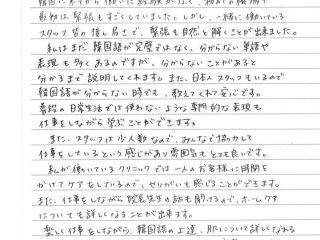 最初は緊張もすごくしていました。しかし、一緒に働いている
スタッフ皆の推し易さで、緊張も自然と解くことが出来ました。
私はまだ韓国語が完璧ではなく、分からない単語や
表現も多くあるのですが、分からないことがあると
分かるまで説明してくれます。また、日本人スタッフもいるので
韓国語が分からない時でも、教えてくれて安心です。
普段の日常生活では使わないような専門的な表現も
仕事をしながら学ぶことができます。
また、スタッフは少人数なので、みんなで協力して
仕事をしているという感じがあり雰囲気もとても良いです。
私が働いているクリニックでは一人のお客様に時間を
かけてケアをしているので、やりがいも感じることができます。
また、仕事をしながら院長先生の話も聞けるので、ホームケア
についても詳しくなることが出来ます。
楽しく仕事をしながら、韓国語の上達、肌について詳しくなれる